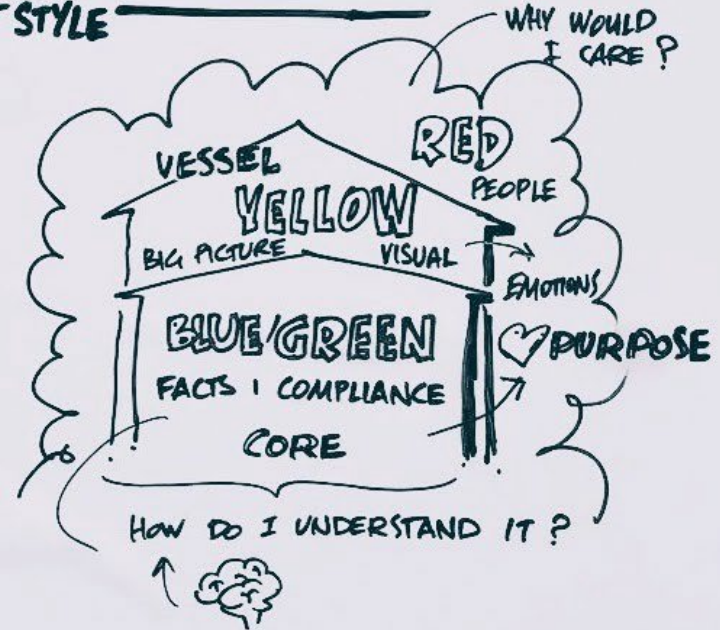 STYLE
WHY WOULD
I CARE?
RED
VESSEL
PEOPLE
YELLOW
BIG PICTURE
VISUAL
EMOTIONS
BLUE/GREEN
PURPOSE
FACTS | COMPLIANCE
CORE
HOW DO I UNDERSTAND IT?